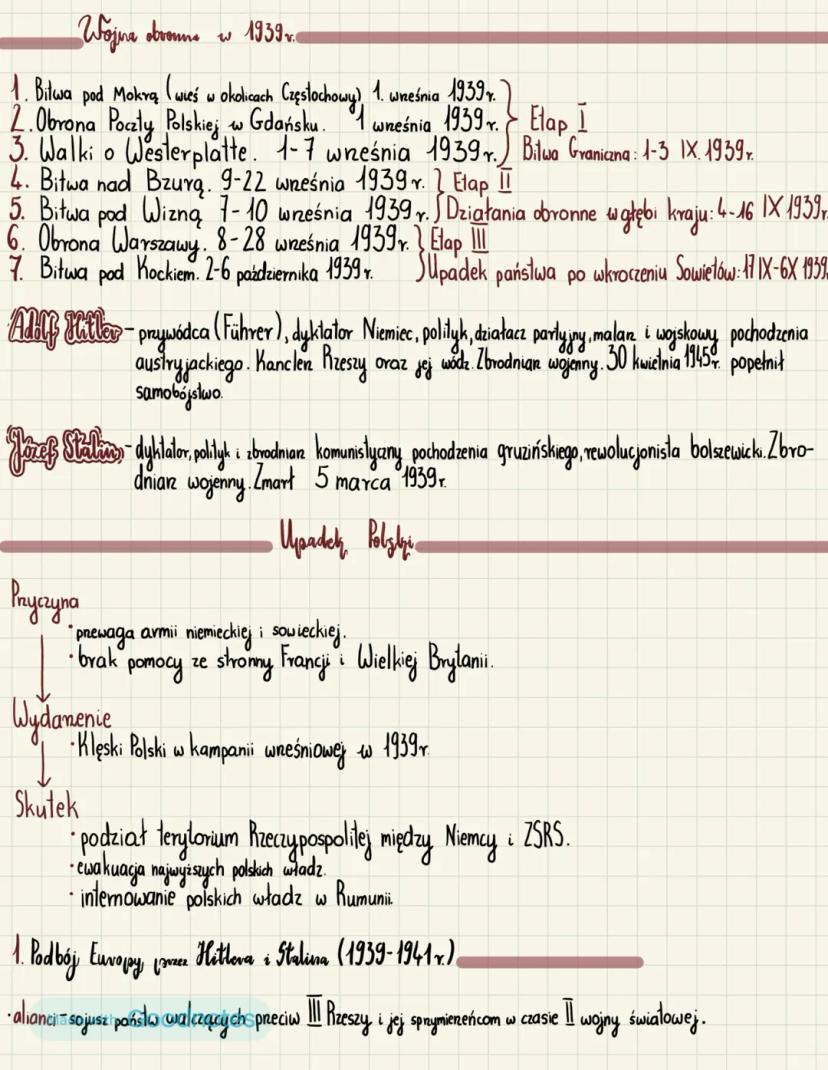 Wojna obronna w 1939r.
1. Bitwa pod Mokrą (wieś w okolicach Częstochowy) 1. września 1939r.
2. Obrona Poczty Polskiej w Gdańsku. 1 września 1939r. Etap I
3. Walki o Westerplatte. 1-7 września 1939r. Bitwa Graniczna: 1-3 IX 1939r.
4. Bitwa nad Bzurą. 9-22 września 1939r. Etap II
5. Bitwa pod Wizną 7-10 września 1939r. Działania obronne w głębi kraju: 4-16 IX 1939r.
6. Obrona Warszawy. 8-28 września 1939r. Etap III
7. Bitwa pod Kockiem. 2-6 października 1939r. Upadek państwa po wkroczeniu Sowietów: 17 IX-6X 1939.
Adolf Hitler - przywódca (Führer), dyktator Niemiec, polityk, działacz partyjny, malarz i wojskowy pochodzenia
austryjackiego. Kanclerz Rzeszy oraz jej wódz. Zbrodniarz wojenny. 30 kwietnia 1945r. popełnił
samobójstwo.
Józef Stalin - dyktator, polityk i zbrodniarz komunistyczny pochodzenia gruzińskiego, rewolucjonista bolszewicki. Zbro-
dniarz wojenny. Zmarł 5 marca 1939r.
Upadek Polski
Przyczyna
· przewaga armii niemieckiej i sowieckiej.
· brak pomocy ze stronny Francji i Wielkiej Brytanii.
Wydarzenie
· Klęski Polski w kampanii wrześniowej w 1939r.
Skutek
· podział terytorium Rzeczypospolitej między Niemcy i ZSRS.
· ewakuacja najwyższych polskich władz.
· internowanie polskich władz w Rumunii.
1. Podbój Europy przez Hitlera i Stalina (1939-1941r.)
· alianci - sojusz państw walczących przeciw III Rzeszy i jej sprzymierzeńcom w czasie II wojny światowej.
Made with Goodnotes